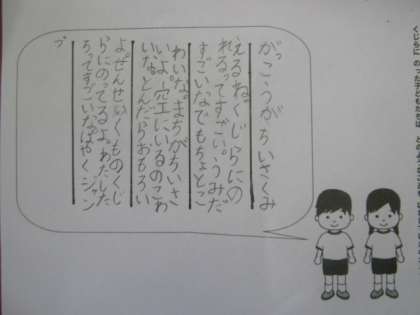 がっこうがちいさくみ
えるね。くじらにの
れるってすごい。うみだ
すごいなでもちょとこ
わいな。まちがちいさ
いよ。空エにいるのこわ
いなとんだらおもろい
よ。ぜんせいくものくじ
らにのってるよ。わたした
ちってすごいな。はやくジャン
プ